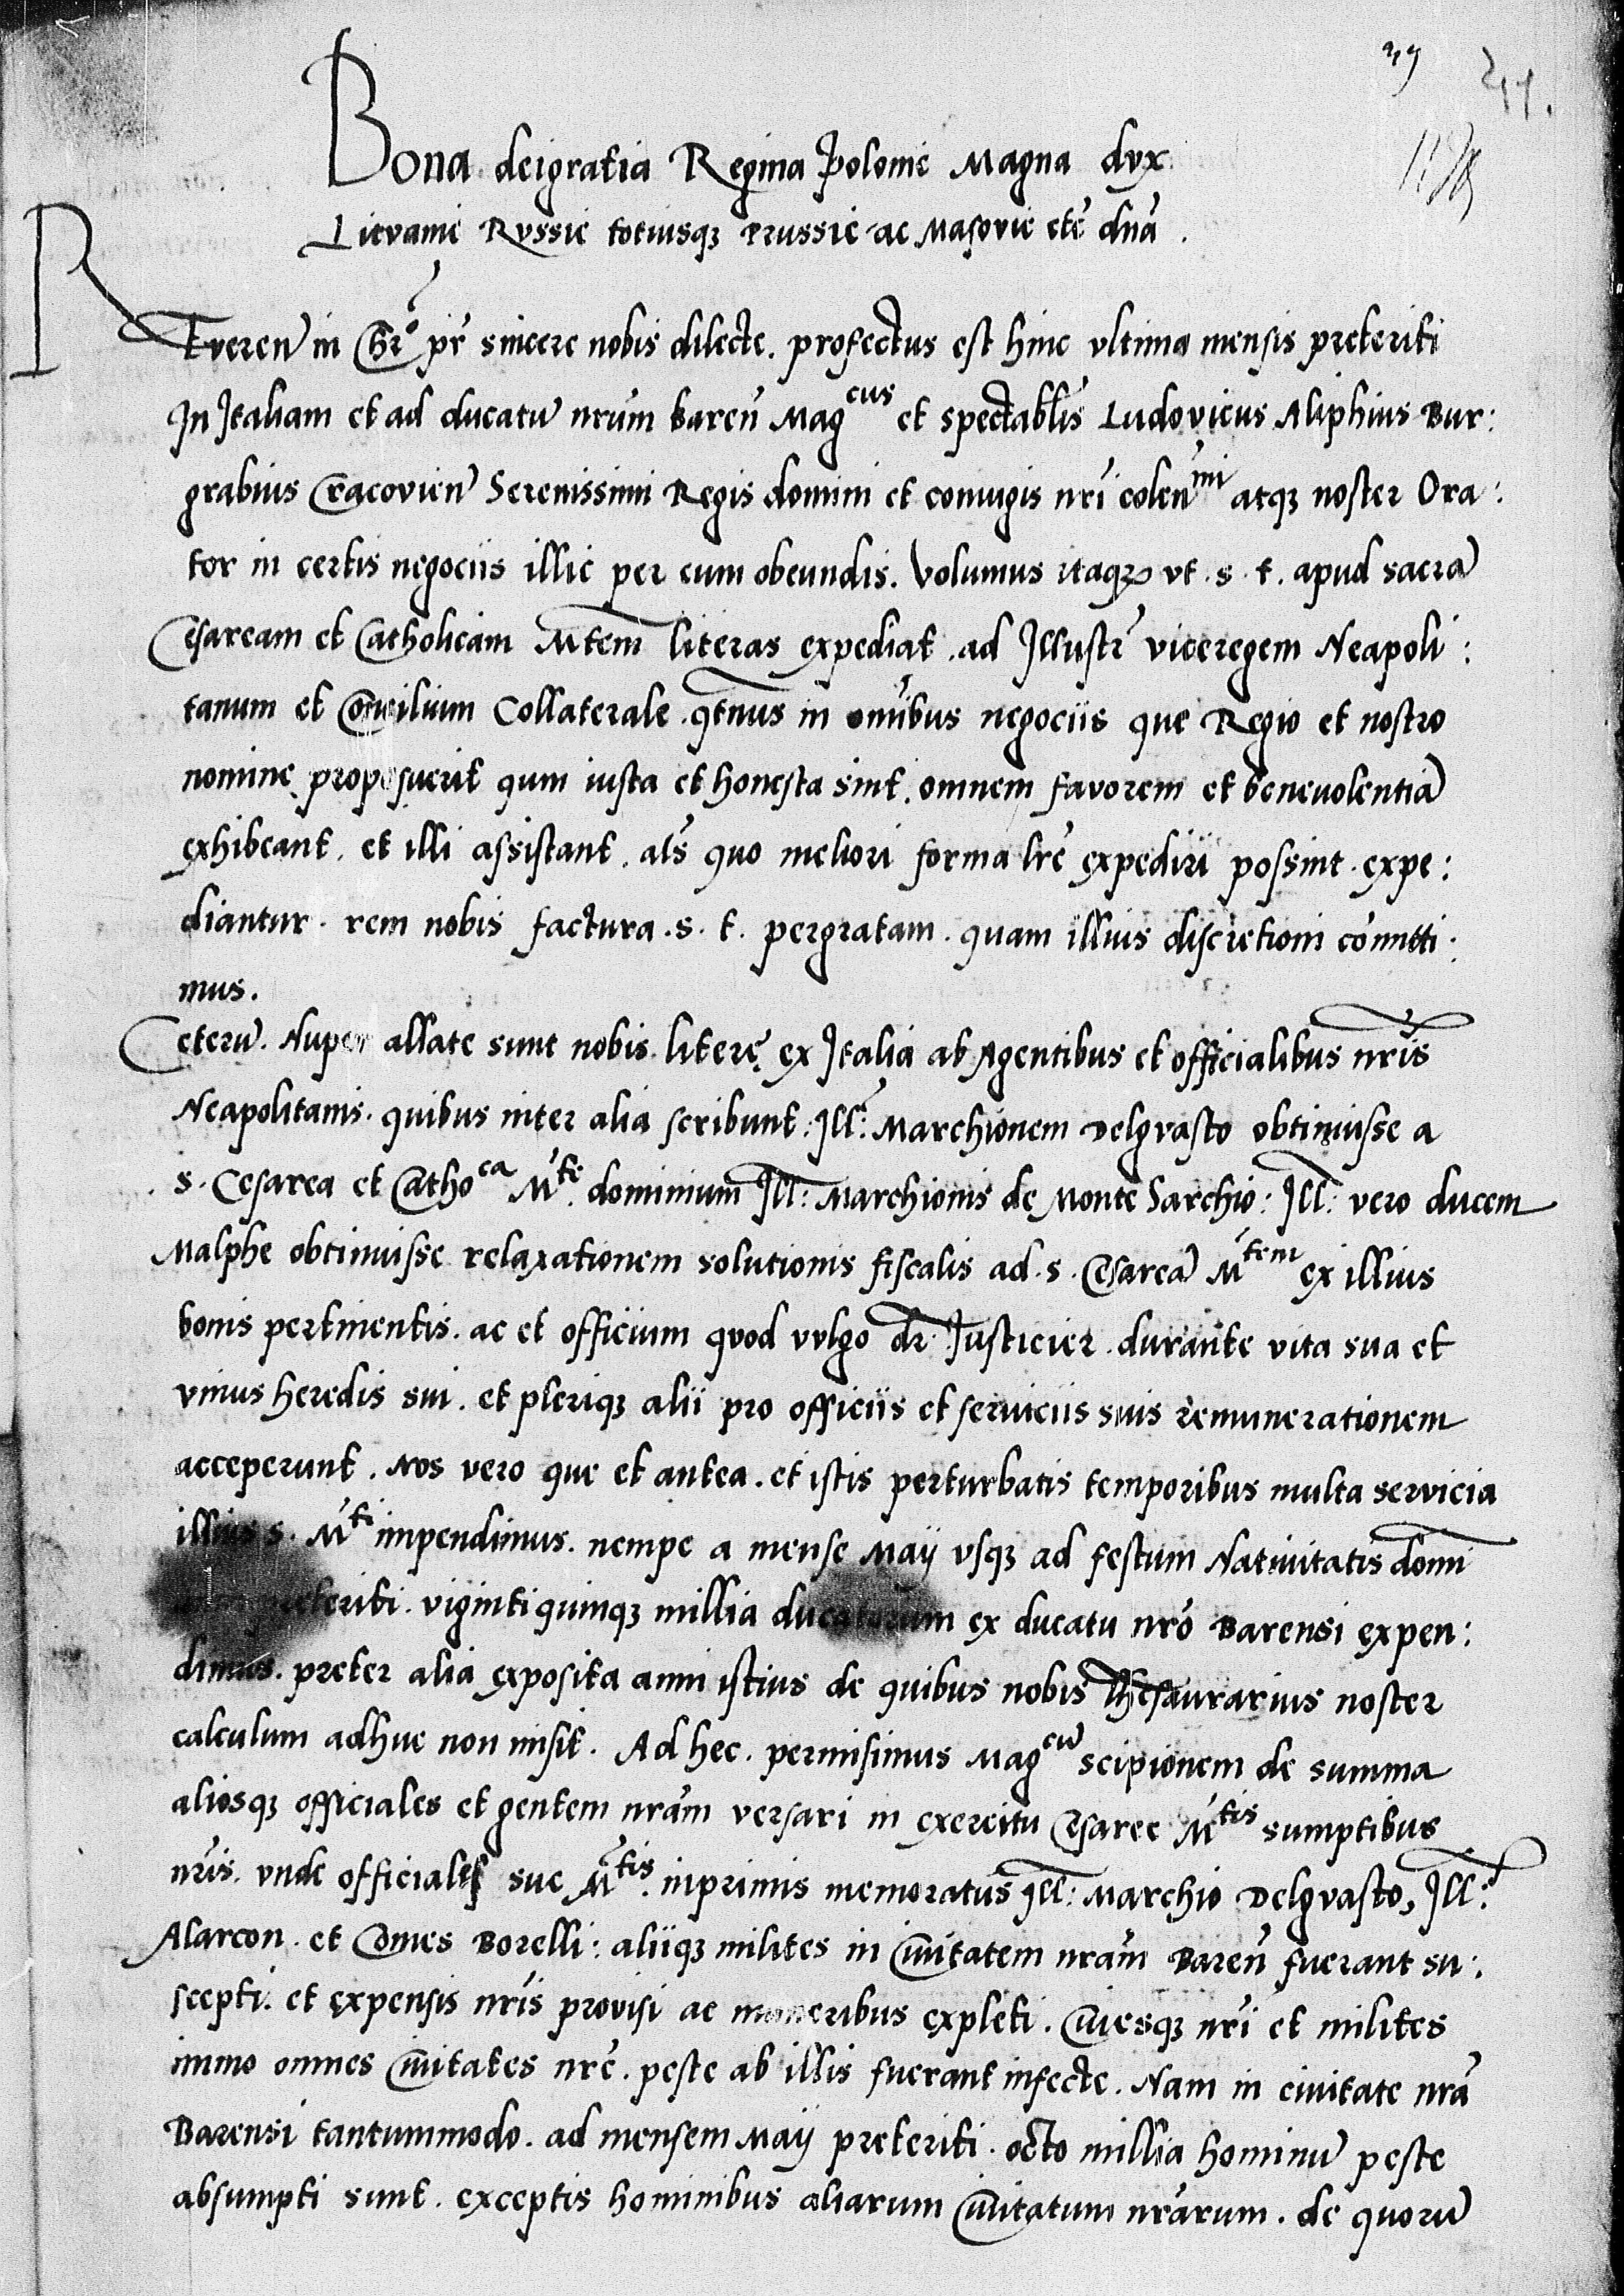 39 41.
Bona deigratia Regina Polonie Magna dvx
Litvanie Rvssie totiusqz Prussie ac Masovie etc̃ dnã.
Reveren̄ in Chr̃o pr̃ sincere nobis dilecte. profectus est hinc vltima mensis preteriti
In Italiam et ad ducatū nrũm baren̄ Magcus et spectablĩs Ludovicus Aliphius Bur:
grabius Cracovien̄ Serenissimi Regis domini et coniugis nrĩ colenmi atqz noster Ora:
tor in certis negociis illic per eum obeundis. Volumus itaqz vt . s . t . apud sacrā
Cesaream et Catholicam Mtem literas expediat . ad Illustr̃ viceregem Neapoli:
tanum et Consilium Collaterale . qtñus in omĩbus negociis que Regio et nostro
nomine proposuerit qum iusta et honesta sint . omnem favorem et benevolentiā
exhibeant . et illi assistant . als̃ quo meliori forma lrẽ expediri possint . expe:
diantur . rem nobis factura . s . t . pergratam . quam illius discretioni cõmitti:
mus.
Ceterū. Nuper allate sunt nobis literę ex Italia ab Agentibus et officialibus nrĩs
Neapolitanis . quibus inter alia scribunt : Ill: Marchionem Delgvasto obtinuisse a
s. Cesarea et Cathoca Mte. dominium Ill: Marchionis de Monte Sarchio : Ill: vero ducem
Malphe obtinuisse relaxationem solutionis fiscalis ad . s . Cesareā Mtem ex illius
bonis pertinentis . ac et officium qvod vvlgo dr̃ Iusticier . durante vita sua et
vnius heredis sui . et pleriqz alii pro officiis et serviciis suis remunerationem
acceperunt . Nos vero que et antea . et istis perturbatis temporibus multa servicia
illius s. Mti impendimus . nempe a mense Maij vsqz ad festum Nativitatis domi
preteriti . viginti quinqz millia ducatorum ex ducatu nrõ Barensi expen:
dimus . preter alia exposita anni istius de quibus nobis Thesaurarius noster
calculum adhuc non misit . Ad hec . permisimus Magcū scipionem de summa
aliosqz officiales et gentem nrãm versari in exercitu Cesaree Mtis sumptibus
nrĩs . vnde officiales sue Mtis. inprimis memoratus Ill: Marchio Delgvasto, Ill:
Alarcon . et Comes Borelli : aliiqz milites in Civitatem nrãm Baren̄ fuerant su:
scepti . et expensis nrĩs provisi ac muneribus expleti . Civesqz nrĩ et milites
immo omnes Civitates nrẽ . peste ab illis fuerant infecte . Nam in civitate nrã
Barensi tantummodo . ad mensem Maij preteriti . octo millia hominū peste
absumpti sunt . exceptis hominibus aliarum Civitatum nrãrum . de quorū